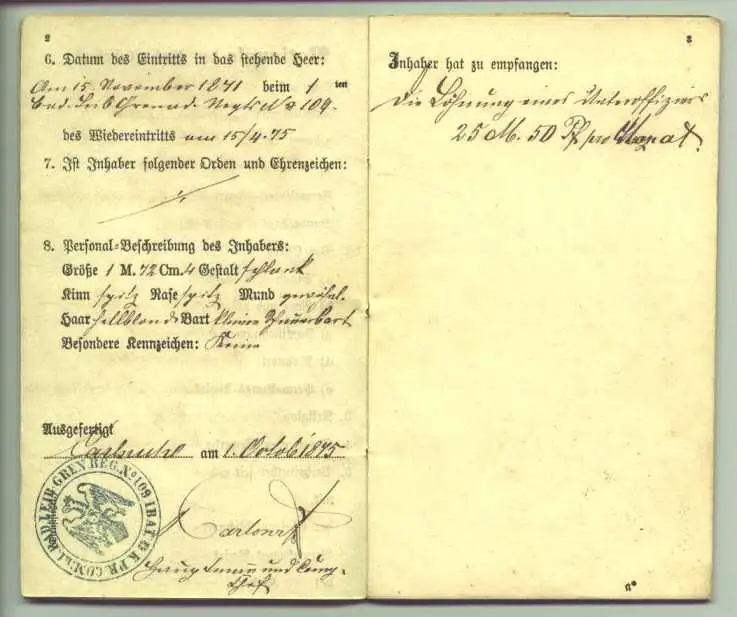 2
6. Datum des Eintritts in das stehende Heer:
Am 15. November 1871 beim 1 ten
Bad. Leib Grenad. Regts No 109.
des Wiedereintritts am 15/4.75
7. Ist Inhaber folgender Orden und Ehrenzeichen:
8. Personal-Beschreibung des Inhabers:
Größe 1 M. 72 Cm. 4 Gestalt schlank
Kinn spitz Nase spitz Mund gewöhnl.
Haar hellblond Bart kleiner Schnurrbart
Besondere Kennzeichen: Keine
Ausgefertigt
Carlsruhe am 1. Octob 1875
K. PR. COM: 1. BAD. LEIB. GREN. REG. No 109 I BAT
Hauptmann und Comp.
Chef
3
Inhaber hat zu empfangen:
Die Löhnung eines Unteroffiziers
25 M. 50 Pf pro Monat.